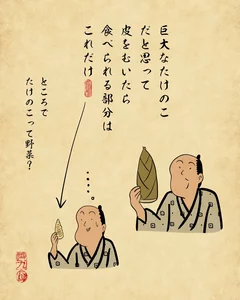 巨大なたけのこ
だと思って
皮をむいたら
食べられる部分は
これだけ
・・・・・
ところで
たけのこって野菜？